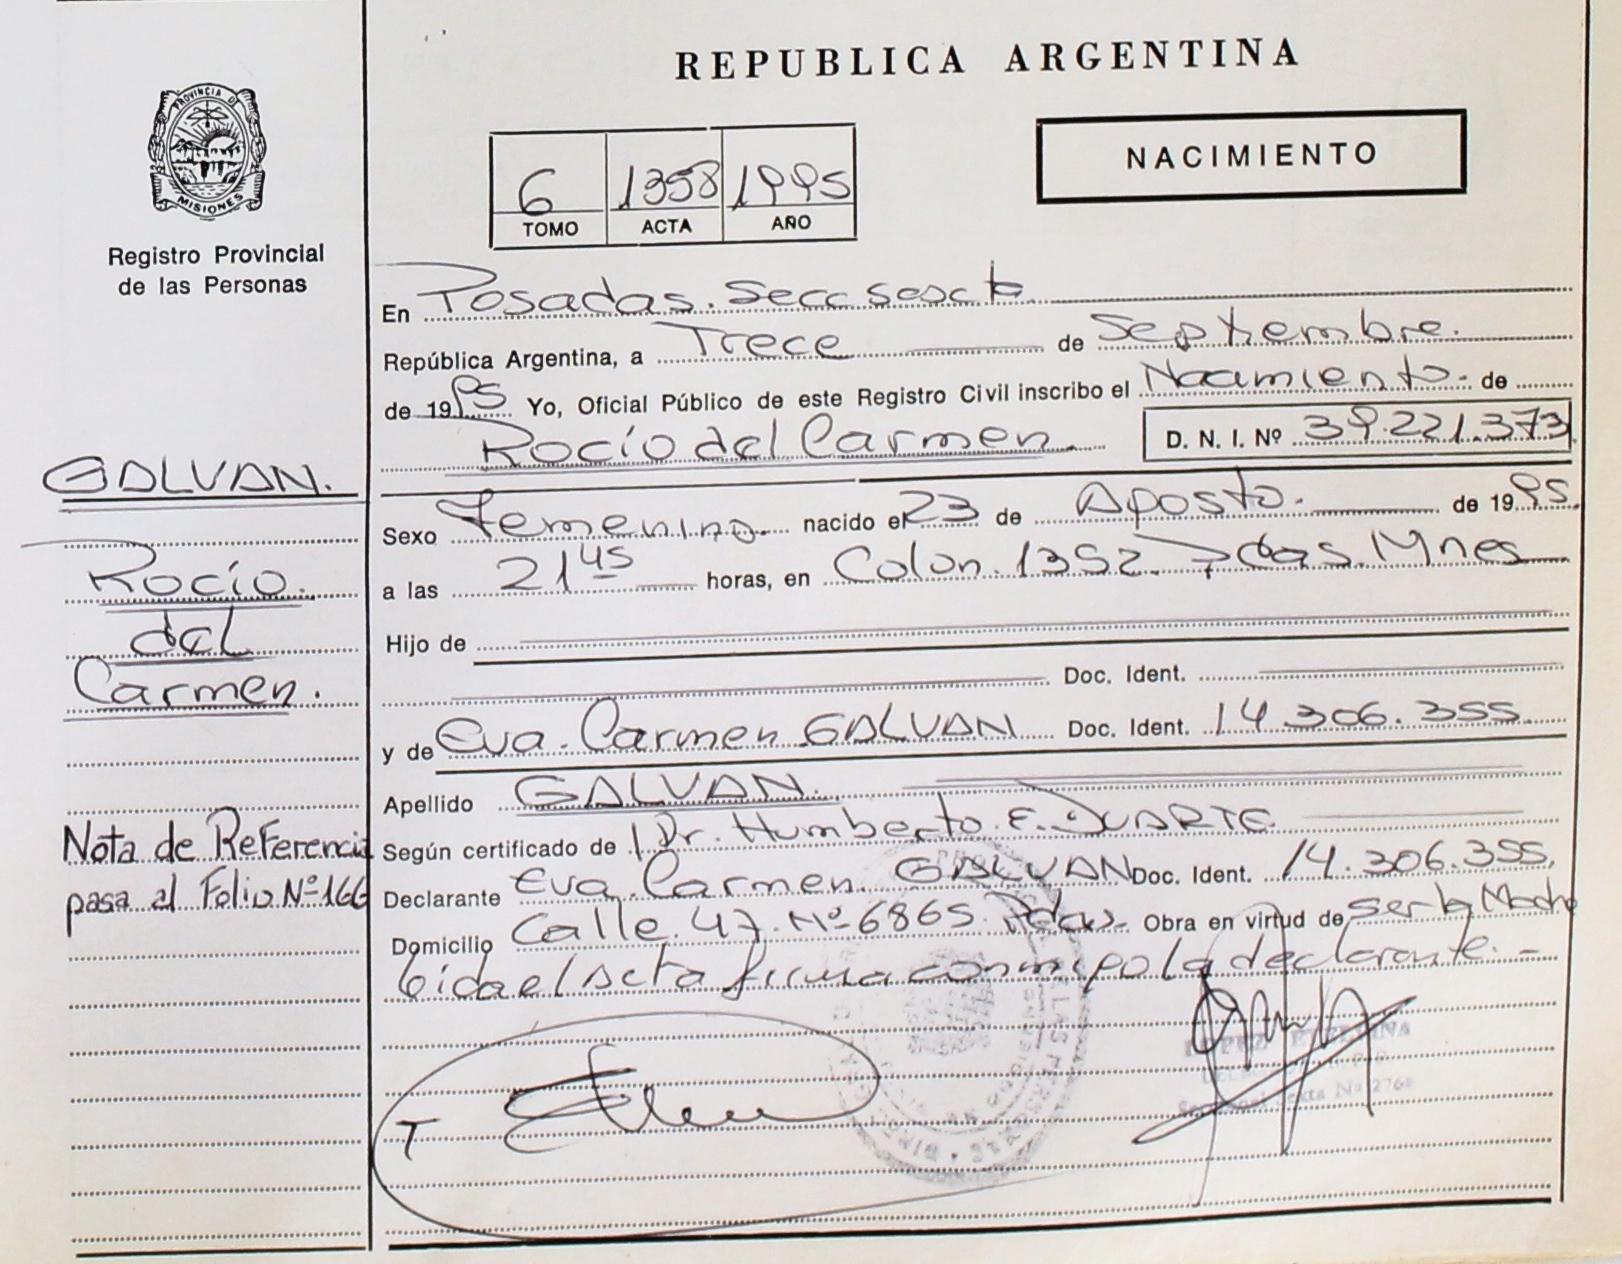 REPUBLICA ARGENTINA
PROVINCIA DE
MISIONES
Registro Provincial
de las Personas
6 1358 1995
TOMO ACTA AÑO
NACIMIENTO
En Posadas. Secc sexta
República Argentina, a Trece de Septiembre.
de 1995 Yo, Oficial Público de este Registro Civil inscribo el Nacimiento. de
Rocío del Carmen. D. N. I. Nº 39.221.373
GALVAN.
Rocío.
del
Carmen.
Sexo Femenino. nacido el 23 de Agosto. de 1995.
a las 21 45 horas, en Colon. 1352. Pdas. Mnes
Hijo de
Doc. Ident.
y de Eva. Carmen GALVAN Doc. Ident. 14.306.355.
Apellido GALVAN.
Según certificado de Dr. Humberto. E. DUARTE
Declarante Eva. Carmen. GALVAN Doc. Ident. 14.306.355.
Domicilio Calle. 47. Nº 6865. Pdas. Obra en virtud de ser la Madre
Leida el Acta firma conmigo la declarante. -
Nota de Referencia
pasa al Folio Nº 166
T
LOPEZ ETELVINA
Seccional Sexta Nº 276